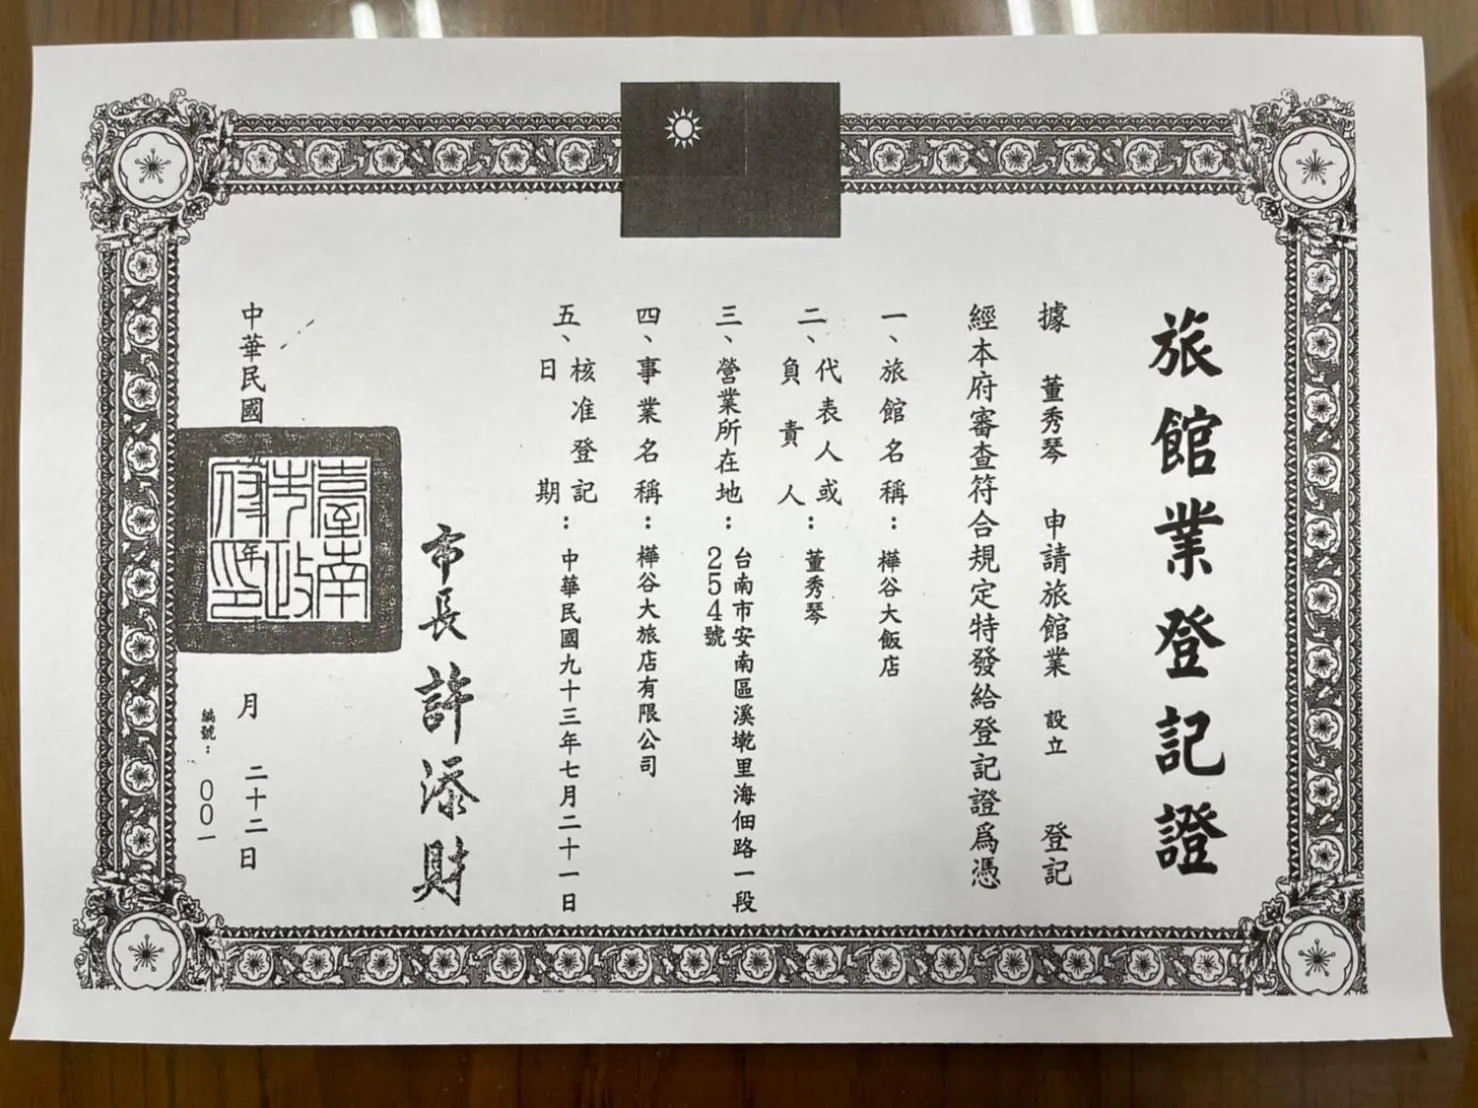 旅館業登記證
據 董秀琴 申請旅館業 設立 登記
經本府審查符合規定特發給登記證爲憑
一、旅館名稱：樺谷大飯店
二、代表人或
負責人：董秀琴
三、營業所在地：台南市安南區溪墘里海佃路一段
254號
四、事業名稱：樺谷大旅店有限公司
五、核准登記
日期：中華民國九十三年七月二十一日
市長 許添財
中華民國 年 月 二十二日
臺南市政府印
編號：００一